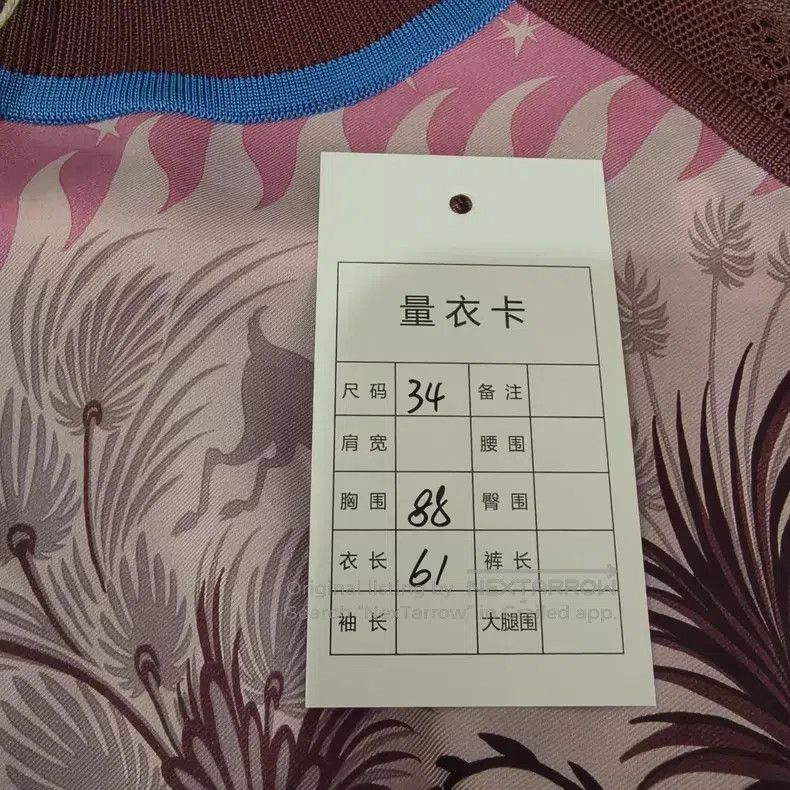 量衣卡
尺码 34 备注
肩宽 腰围
胸围 88 臀围
衣长 61 裤长
袖长 大腿围
Original listing by NEXTARROW
Search "NexTarrow" in Grailed app.